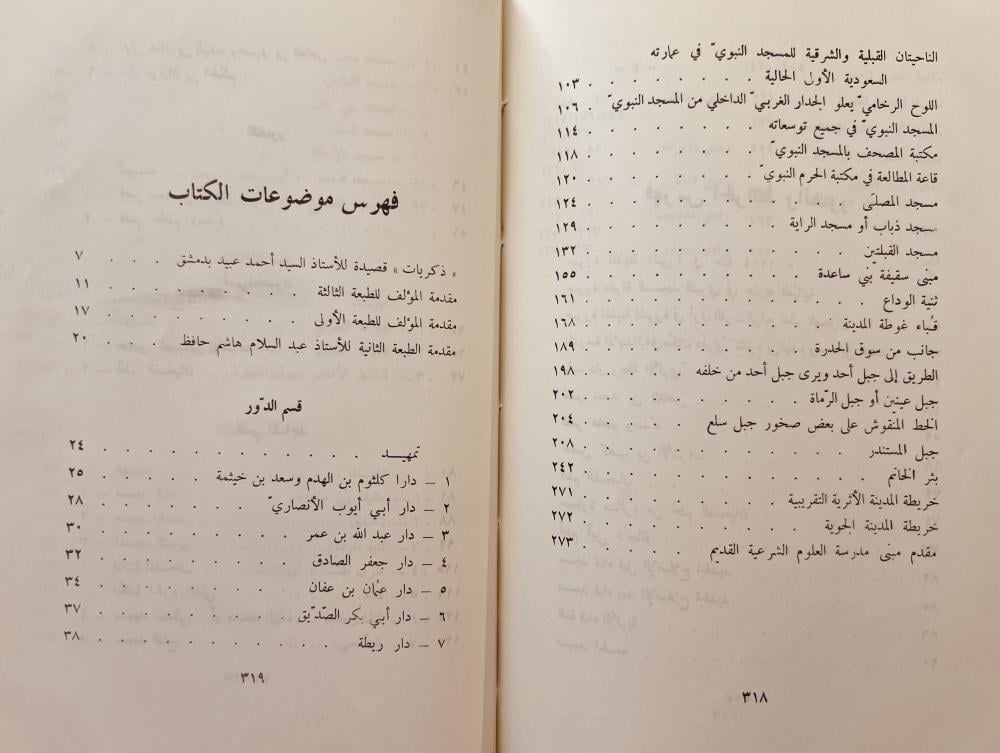 الناحيتان القبلية والشرقية للمسجد النبويّ في عمارته
السعودية الأولى الحالية . . . . . . . ١٠٣
اللوح الرخاميّ يعلو الجدار الغربيّ الداخلي من المسجد النبويّ . ١٠٦
المسجد النبويّ في جميع توسعاته . . . . . . . . ١١٤
مكتبة المصحف بالمسجد النبويّ . . . . . . . . ١١٨
قاعة المطالعة في مكتبة الحرم النبويّ . . . . . . . ١٢٠
مسجد المصلّى . . . . . . . . . . . ١٢٤
مسجد ذباب أو مسجد الراية . . . . . . . . ١٢٩
مسجد القبلتين . . . . . . . . . . . ١٣٢
مبنى سقيفة بني ساعدة . . . . . . . . . ١٥٥
ثنية الوداع . . . . . . . . . . . ١٦١
قباء غوطة المدينة . . . . . . . . . . ١٦٨
جانب من سوق الحدرة . . . . . . . . . ١٨٩
الطريق إلى جبل أحد ويرى جبل أحد من خلفه . . . . . ١٩٨
جبل عينين أو جبل الرّماة . . . . . . . . . ٢٠٢
الخط المنقوش على بعض صخور جبل سلع . . . . . . ٢٠٤
جبل المستندر . . . . . . . . . . . ٢٠٨
بئر الخاتم . . . . . . . . . . . ٢٤٢
خريطة المدينة الأثرية التقريبية . . . . . . . ٢٧١
خريطة المدينة الجوية . . . . . . . . . ٢٧٢
مقدم مبنى مدرسة العلوم الشرعية القديم . . . . . . ٢٧٣
٣١٨
فهرس موضوعات الكتاب
« ذكريات » قصيدة للأستاذ السيد أحمد عبيد بدمشق . . . ٧
مقدمة المؤلف للطبعة الثالثة . . . . . . . . ١١
مقدمة المؤلف للطبعة الأولى . . . . . . . . ١٧
مقدمة الطبعة الثانية للأستاذ عبد السلام هاشم حافظ . . . ٢٠
قسم الدّور
تمهيـــد . . . . . . . . . . . . ٢٤
١ – دارا كلثوم بن الهدم وسعد بن خيثمة . . . . . ٢٥
٢ – دار أبي أيوب الأنصاريّ . . . . . . . ٢٨
٣ – دار عبد الله بن عمر . . . . . . . . . ٣٠
٤ – دار جعفر الصادق . . . . . . . . . ٣٢
٥ – دار عثمان بن عفان . . . . . . . . . ٣٤
٦ – دار أبي بكر الصّدّيق . . . . . . . . . ٣٧
٧ – دار ريطة . . . . . . . . . . . ٣٨
٣١٩